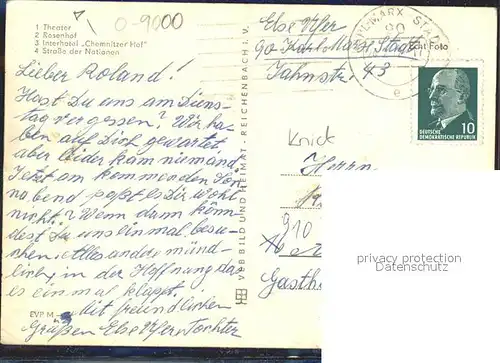 O-9000
1 Theater
2 Rosenhof
3 Interhotel „Chemnitzer Hof"
4 Straße der Nationen
Lieber Roland!
Hast Du uns am Diens-
tag vergessen? Wir ha-
ben auf Dich gewartet
aber leider kam niemand.
Jetzt am kommenden Son-
nabend paßt es Dir wohl
nicht? Wenn dann könn-
dest Du uns einmal besu-
chen. Alles andere münd-
lich, in der Hoffnung das
es einmal klappt.
Mit freundlichen
Grüßen Else Tochter
EVP M
VEB BILD UND HEIMAT · REICHENBACH I. V.
Else
90 Karl-Marx-Stadt
Jahnstr. 43
Echt Foto
KARL-MARX-STADT
90
e
10
DEUTSCHE
DEMOKRATISCHE REPUBLIK
Knick
Herrn
910
Gasth
privacy protection
Datenschutz